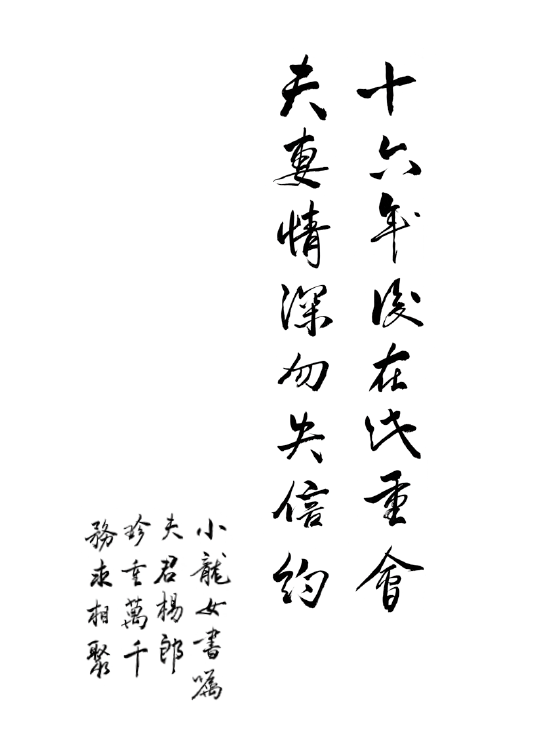 十六年後在此重會
夫妻情深勿失信約
小龍女書囑
夫君楊郎
珍重萬千
務求相聚